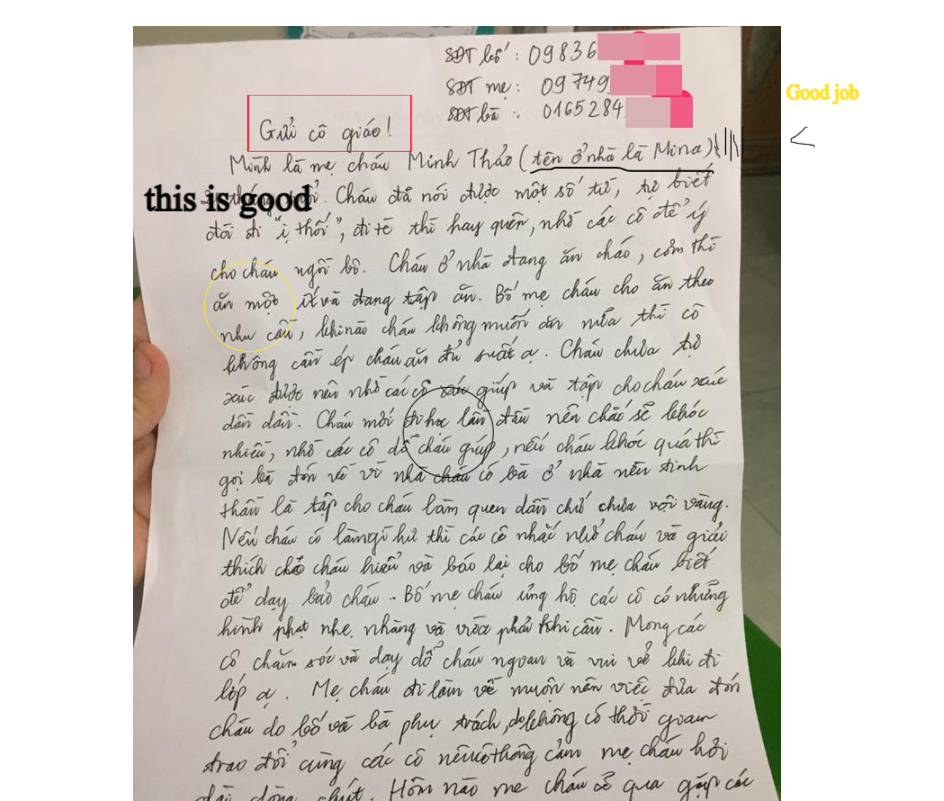 SĐT bố: 09836
SĐT mẹ: 09749
SĐT bà: 0165284
Good job
Gửi cô giáo!
Mình là mẹ cháu Minh Thảo (tên ở nhà là Mina)
this is good
tuổi. Cháu đã nói được một số từ, tự biết
đòi đi "ị thối", đi tè thì hay quên, nhờ các cô để ý
cho cháu ngồi bô. Cháu ở nhà đang ăn cháo, cơm thì
ăn một ít và đang tập ăn. Bố mẹ cháu cho ăn theo
nhu cầu, khi nào cháu không muốn ăn nữa thì cô
không cần ép cháu ăn đủ suất ạ. Cháu chưa tự
xúc được nên nhờ các cô xúc giúp và tập cho cháu xúc
dần dần. Cháu mới đi học lần đầu nên chắc sẽ khóc
nhiều, nhờ các cô dỗ cháu giúp, nếu cháu khóc quá thì
gọi bà đón về vì nhà cháu có bà ở nhà nên tinh
thần là tập cho cháu làm quen dần chứ chưa vội vàng.
Nếu cháu có làm gì hư thì các cô nhắc nhở cháu và giải
thích cho cháu hiểu và báo lại cho bố mẹ cháu biết
để dạy bảo cháu. Bố mẹ cháu ủng hộ các cô có những
hình phạt nhẹ nhàng và vừa phải khi cần. Mong các
cô chăm sóc và dạy dỗ cháu ngoan và vui vẻ khi đi
lớp ạ. Mẹ cháu đi làm về muộn nên việc đưa đón
cháu do bố và bà phụ trách, do không có thời gian
trao đổi cùng các cô nên cô thông cảm mẹ cháu hơi
dài dòng chút. Hôm nào mẹ cháu sẽ qua gặp các